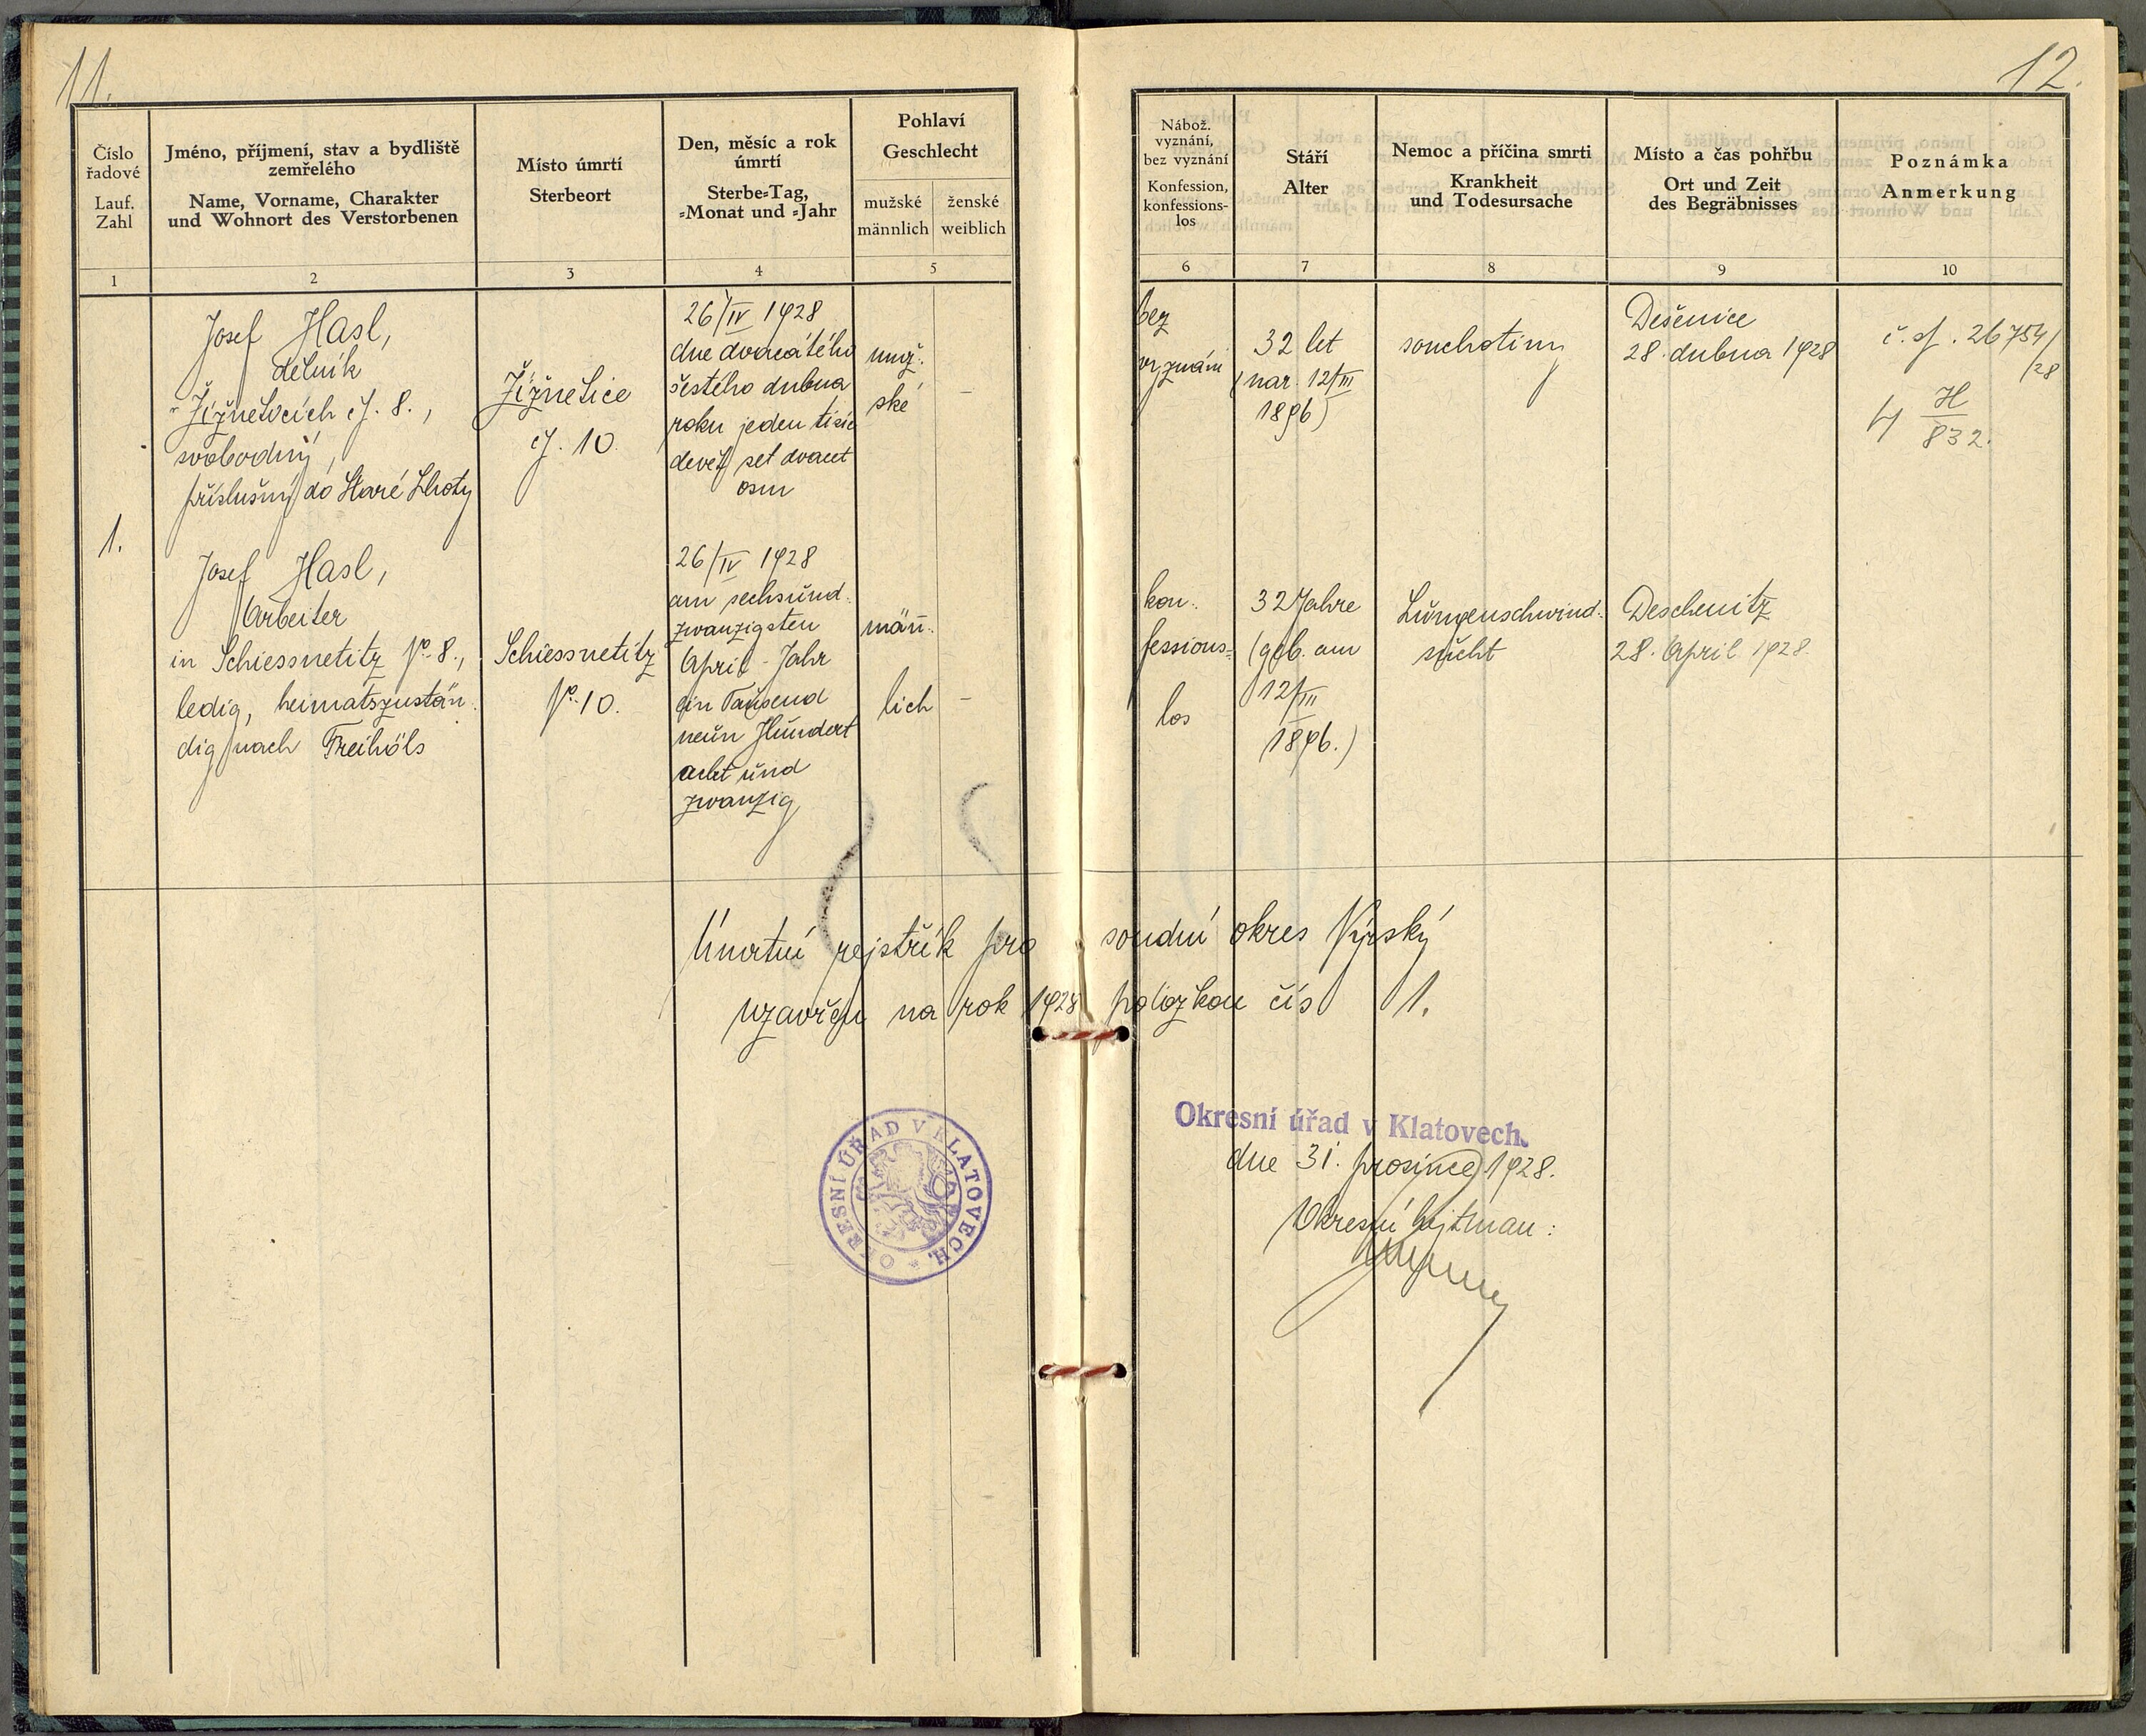 11.
Číslo
řadové
Lauf.
Zahl
Jméno, příjmení, stav a bydliště
zemřelého
Name, Vorname, Charakter
und Wohnort des Verstorbenen
Místo úmrtí
Sterbeort
Den, měsíc a rok
úmrtí
Sterbe=Tag,
=Monat und =Jahr
Pohlaví
Geschlecht
mužské
männlich
ženské
weiblich
1
2
3
4
5
1.
Josef Hasl,
dělník
Žižnětvcích čj. 8.,
svobodný,
příslušný do Staré Lhoty
Žižnětice
čj. 10.
26/IV 1928
dne dvacátého
šestého dubna
roku jeden tisíc
devět set dvacet
osm
muž.
ské
–
Josef Hasl,
Arbeiter
in Schiessnetitz No 8.,
ledig, heimatszustän.
dig nach Freihöls
Schiessnetitz
No 10.
26/IV 1928
am sechsund.
zwanzigsten
April - Jahr
ein Tausend
neun Hundert
acht und
zwanzig
män̄.
lich
–
Úmrtní rejstřík pro
uzavřen na rok 1928
OKRESNÍ ÚŘAD V KLATOVECH. *
12.
Nábož.
vyznání,
bez vyznání
Konfession,
konfessions-
los
Stáří
Alter
Nemoc a příčina smrti
Krankheit
und Todesursache
Místo a čas pohřbu
Ort und Zeit
des Begräbnisses
Poznámka
Anmerkung
6
7
8
9
10
bez
vyznání
32 let
(nar. 12/III
1896)
souchotiny
Dešenice
28. dubna 1928
č. j. 26754/
/28
4/ H
832.
kon.
fessions=
los
32 Jahre
(geb. am
12/III
1896.)
Lungenschwind.
sucht
Deschenitz
28. April 1928.
soudní okres Nýrský
položkou čís 1.
Okresní úřad v Klatovech.
dne 31. prosince 1928.
Okresní hejtman: